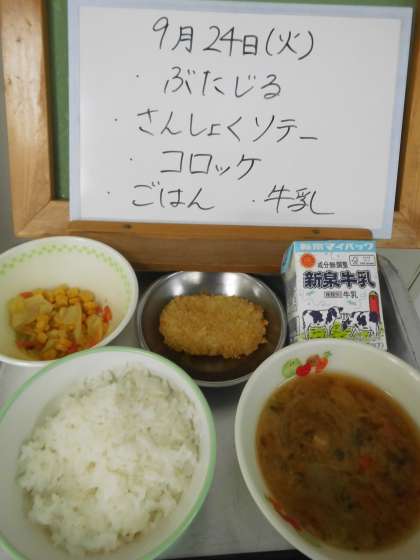 9月24日(火)
・ぶたじる
・さんしょくソテー
・コロッケ
・ごはん ・牛乳
新泉マイパック
成分無調整
新泉牛乳
牛乳